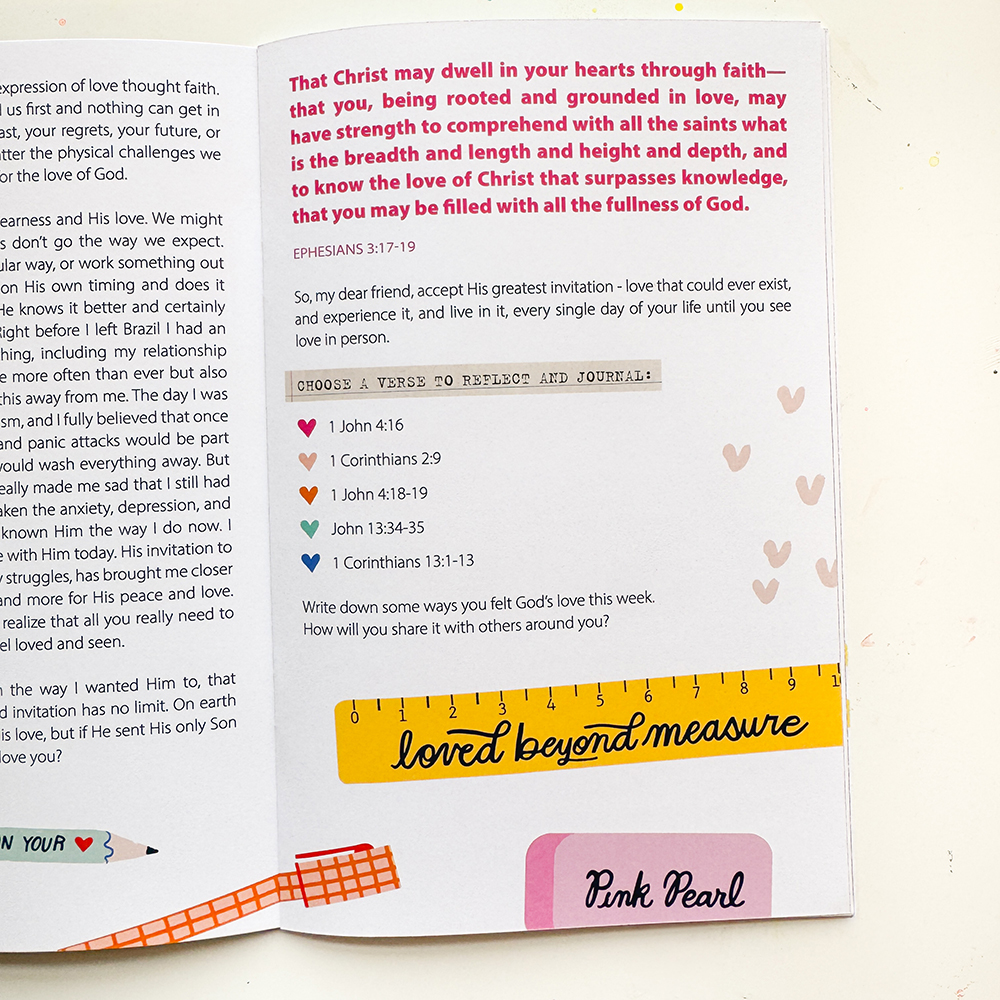 expression of love thought faith.
us first and nothing can get in
ast, your regrets, your future, or
tter the physical challenges we
or the love of God.
earness and His love. We might
s don't go the way we expect.
ular way, or work something out
on His own timing and does it
He knows it better and certainly
Right before I left Brazil I had an
hing, including my relationship
e more often than ever but also
this away from me. The day I was
sm, and I fully believed that once
and panic attacks would be part
would wash everything away. But
eally made me sad that I still had
aken the anxiety, depression, and
known Him the way I do now. I
e with Him today. His invitation to
y struggles, has brought me closer
and more for His peace and love.
realize that all you really need to
el loved and seen.
n the way I wanted Him to, that
d invitation has no limit. On earth
is love, but if He sent His only Son
love you?
N YOUR
That Christ may dwell in your hearts through faith—
that you, being rooted and grounded in love, may
have strength to comprehend with all the saints what
is the breadth and length and height and depth, and
to know the love of Christ that surpasses knowledge,
that you may be filled with all the fullness of God.
EPHESIANS 3:17-19
So, my dear friend, accept His greatest invitation - love that could ever exist,
and experience it, and live in it, every single day of your life until you see
love in person.
CHOOSE A VERSE TO REFLECT AND JOURNAL:
1 John 4:16
1 Corinthians 2:9
1 John 4:18-19
John 13:34-35
1 Corinthians 13:1-13
Write down some ways you felt God's love this week.
How will you share it with others around you?
0 1 2 3 4 5 6 7 8 9 1
loved beyond measure
Pink Pearl